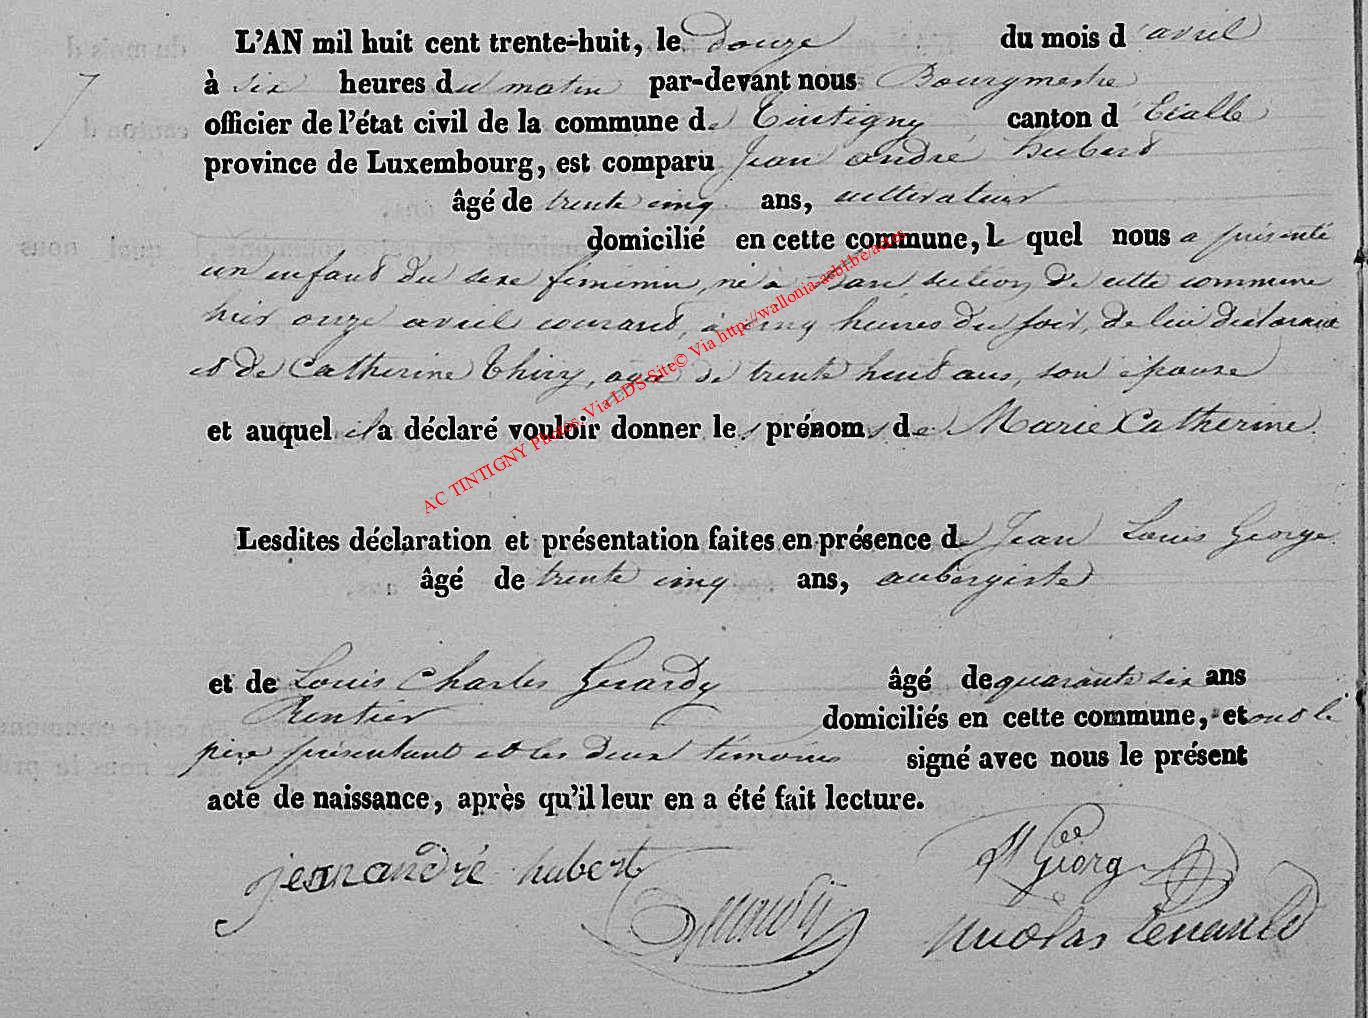 L'AN mil huit cent trente-huit, le douze du mois d'avril
7 à six heures du matin par-devant nous Bourgmestre
officier de l'état civil de la commune de Tintigny canton d'Etalle
province de Luxembourg, est comparu Jean andré hubert
âgé de trente cinq ans, cultivateur
domicilié en cette commune, le quel nous a présenté
un enfant du sexe féminin, né à section de cette commune
hier onze avril courant, à cinq heures du soir, de lui déclarant
et de Catherine Thiry, agée de trente huit ans, son épouse
et auquel il a déclaré vouloir donner les prénoms de Marie Catherine
Lesdites déclaration et présentation faites en présence de Jean Louis George
âgé de trente cinq ans, aubergiste
et de Louis Charles Gerardy âgé de quarante six ans
Rentier domiciliés en cette commune, et ont le
père présentant et les deux témoins signé avec nous le présent
acte de naissance, après qu'il leur en a été fait lecture.
jean andré hubert
Georg
nicolas
AC TINTIGNY Photos. Via LDS Site© Via http://wallonia-asbl.be/actes